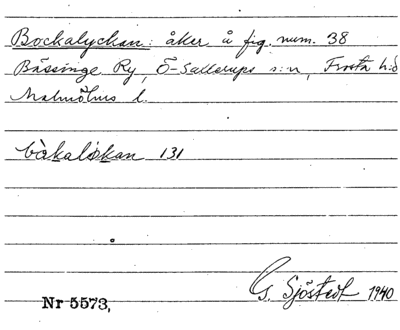 Bockalyckan: åker å fig. num. 38
Bässinge Ry, Ö-Sallerups s:n, Frosta h:d
Malmöhus l.
bòkalỳkan 131
G. Sjöstedt 1940
Nr 5573,